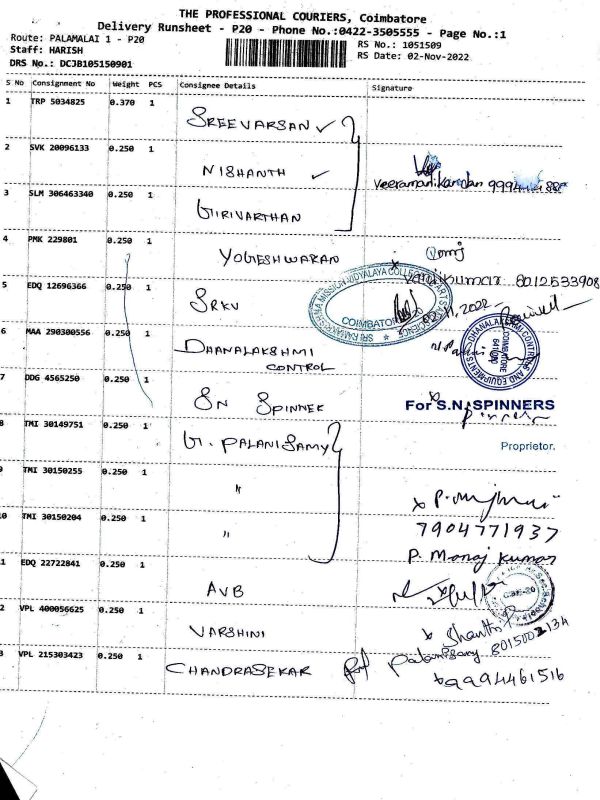 THE PROFESSIONAL COURIERS, Coimbatore
Delivery Runsheet - P20 - Phone No.:0422-3505555 - Page No.:1
Route: PALAMALAI 1 - P20
Staff: HARISH
DRS No.: DCJB105150901
RS No.: 1051509
RS Date: 02-Nov-2022
S No Consignment No Weight PCS Consignee Details Signature
1 TRP 5034825 0.370 1 SREEVARSAN
2 SVK 20096133 0.250 1 NISHANTH
Veeramanikandan
3 SLM 306463340 0.250 1 GIRIVARTHAN
4 PMK 229801 0.250 1 YOGESHWARAN
8012533908
5 EDQ 12696366 0.250 1 SRKV
SRI RAMAKRISHNA MISSION VIDYALAYA COLLEGE OF ARTS AND SCIENCE
COIMBATORE
6 MAA 290300556 0.250 1 DHANALAKSHMI CONTROL
DHANALAKSHMI CONTROLS AND EQUIPMENTS
COIMBATORE
7 DDG 4565250 0.250 1 SN SPINNER
For S.N. SPINNERS
Proprietor.
8 TMI 30149751 0.250 1 G. PALANISAMY
9 TMI 30150255 0.250 1 "
10 TMI 30150204 0.250 1 "
7904771937
P. Manoj Kumar
1 EDQ 22722841 0.250 1 AVB
2 VPL 400056625 0.250 1 VARSHINI
Shanthi P
8015002134
3 VPL 215303423 0.250 1 CHANDRASEKAR
Palanisamy
9994461516